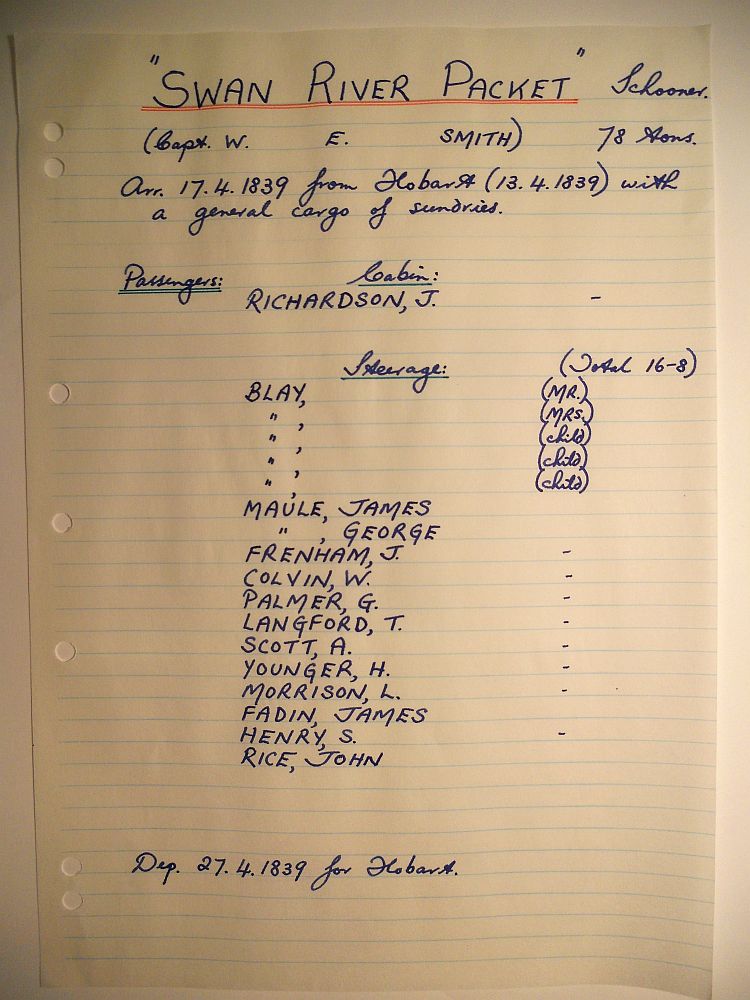 "SWAN RIVER PACKET" Schooner.
(Capt. W. E. SMITH) 78 tons.
Arr. 17.4.1839 from Hobart (13.4.1839) with
a general cargo of sundries.
Passengers: Cabin:
RICHARDSON, J. -
Steerage: (Total 16-8)
BLAY, (MR.)
" , (MRS.)
" , (child)
" , (child)
" , (child)
MAULE, JAMES
" , GEORGE
FRENHAM, J. -
COLVIN, W. -
PALMER, G. -
LANGFORD, T. -
SCOTT, A. -
YOUNGER, H. -
MORRISON, L. -
FADIN, JAMES
HENRY, S. -
RICE, JOHN
Dep. 27.4.1839 for Hobart.